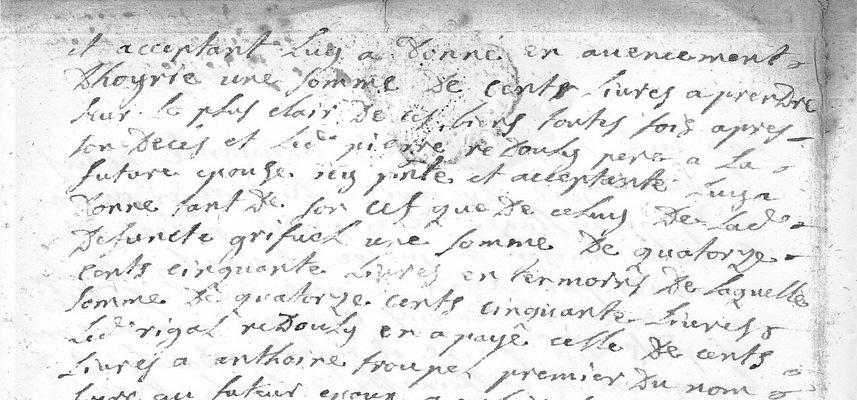 et acceptant Luy a Donné en auencement
Dhoyrie une somme De cents Liures a prendre
sur Le plus clair De ces biens toutes fois apres
son Deces et Led. pierre redouly pere a La
future epouse icy pnte et acceptante Luy a
Donne tant De son chef que De celuy De Lad.
Defuncte grifuel une somme De quatorze
cents cinquante Liures De Laquelle
somme De quatorze cents cinquante Liures
Led. rigal redouly en a payé celle De cents
Liures a anthoine troupel premier Du nom
au futur epoux